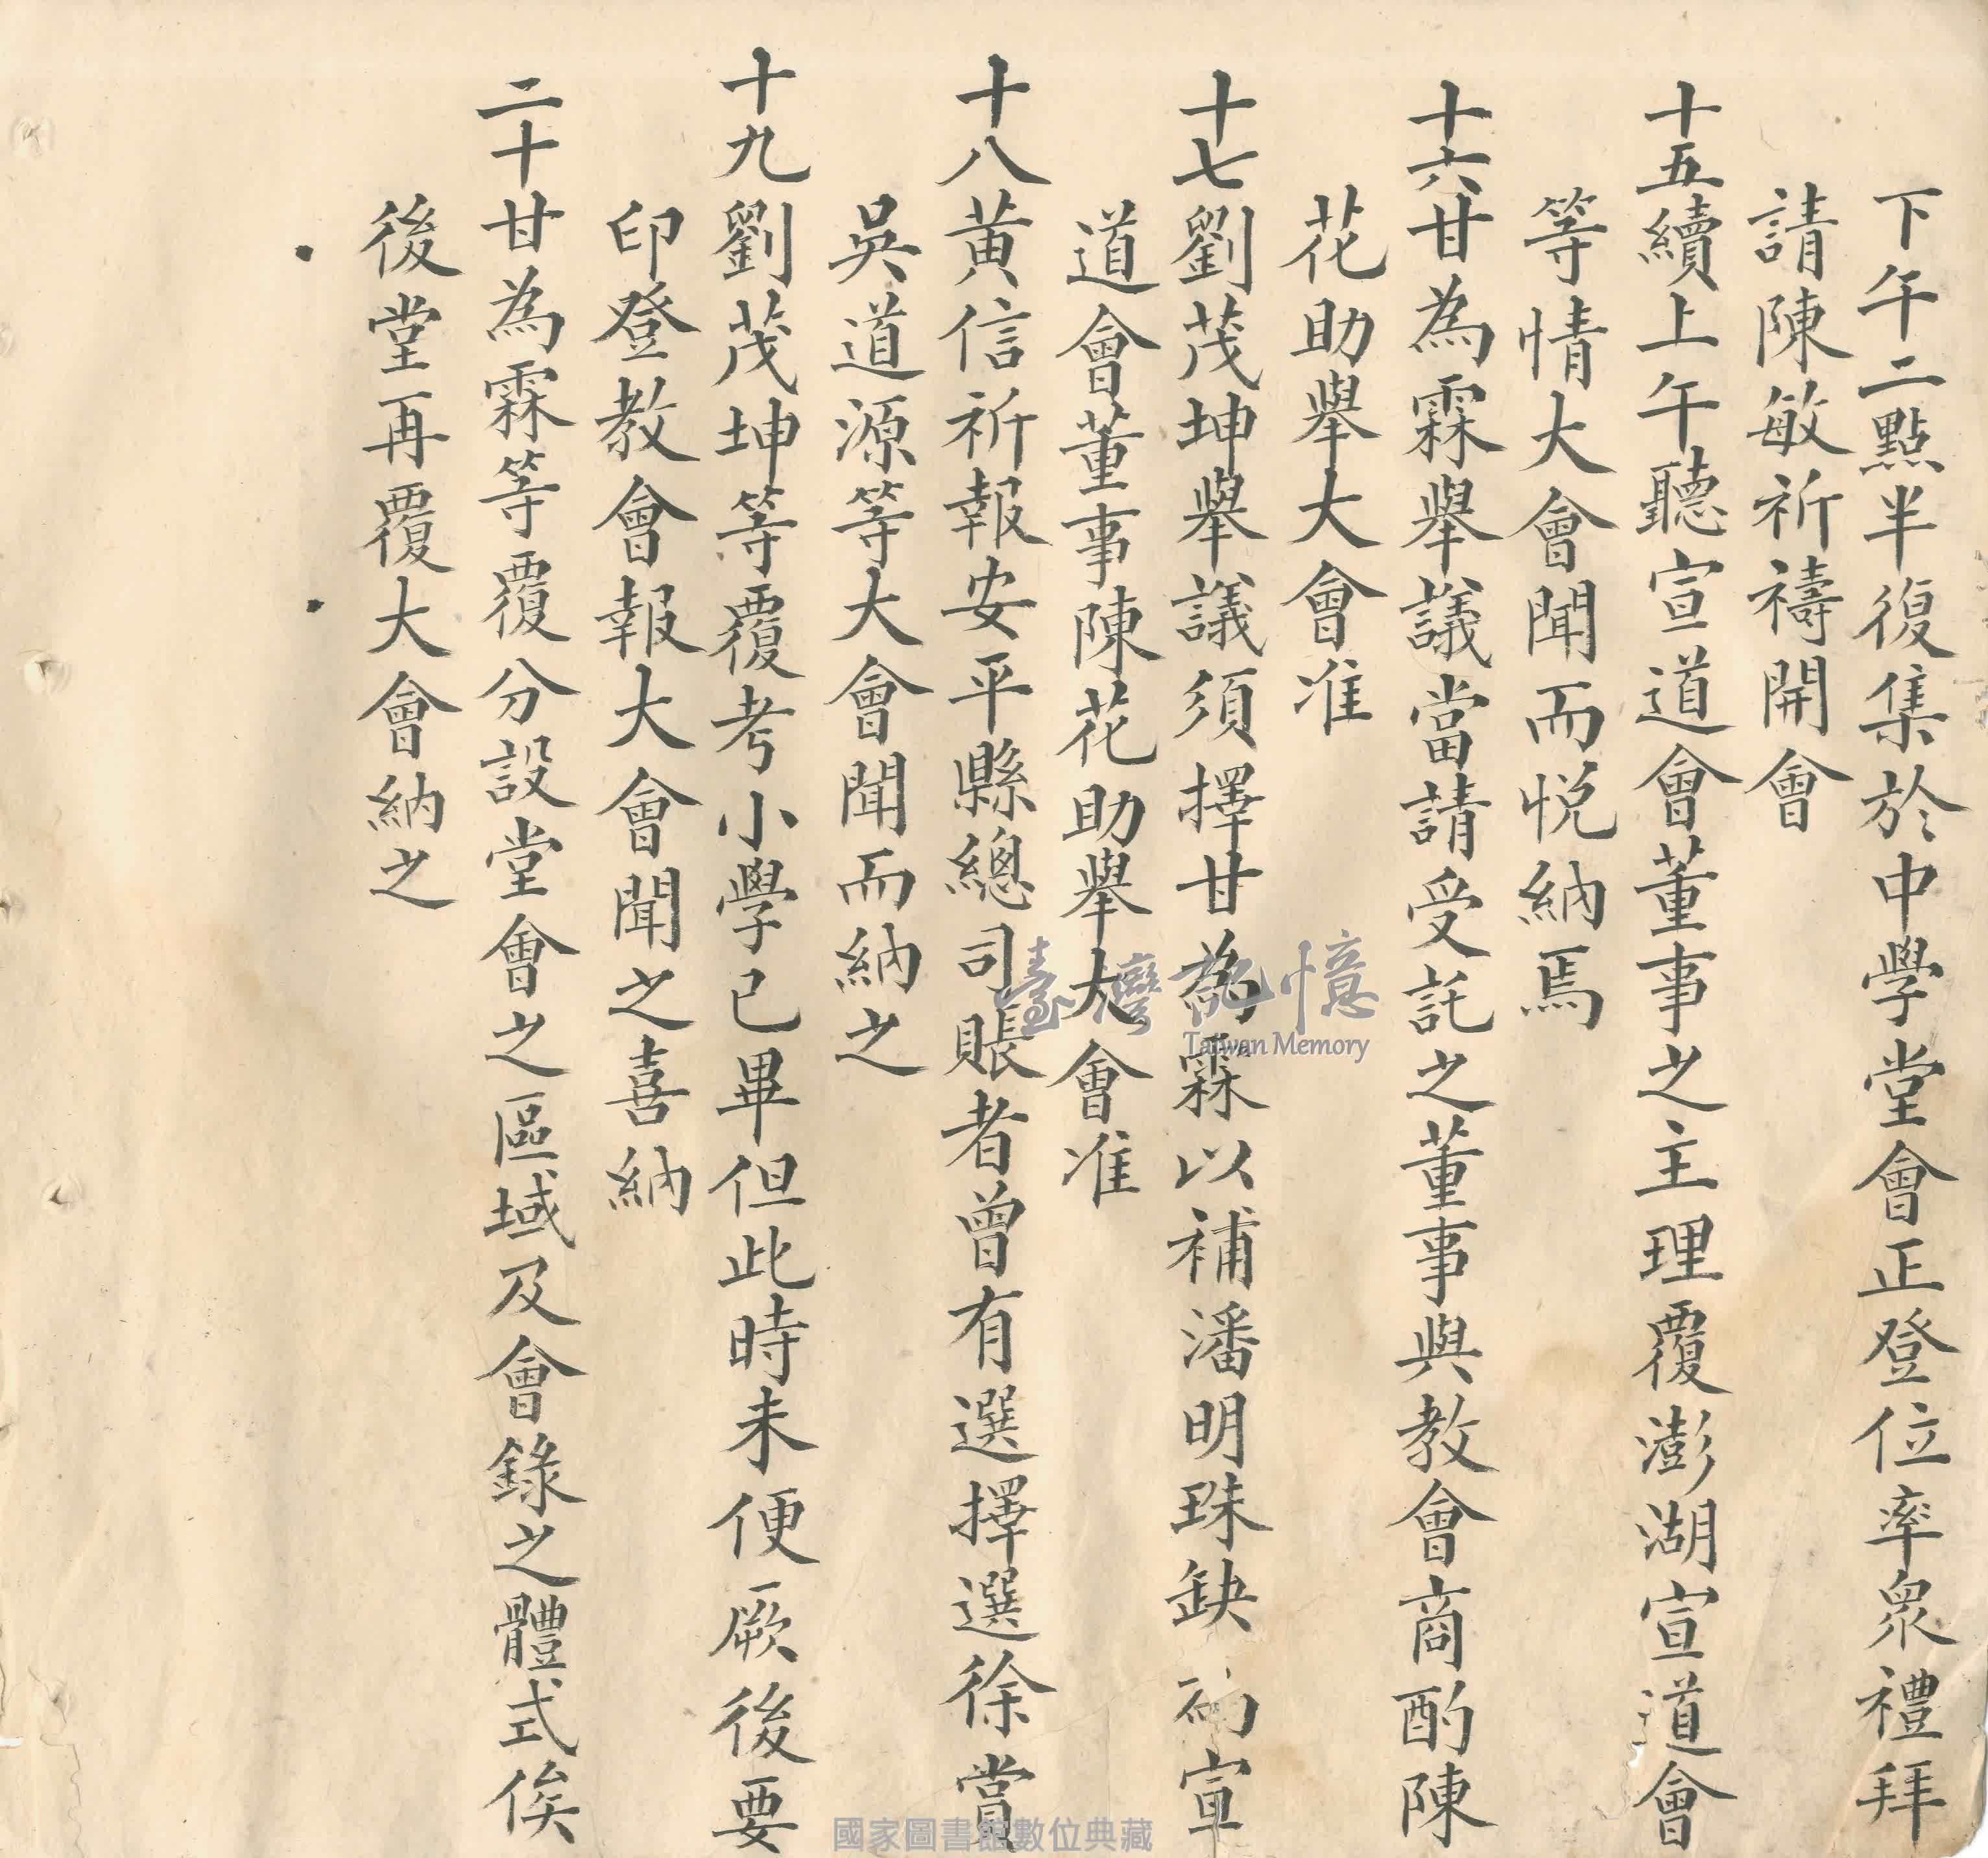 下午二點半復集於中學堂會正登位率眾禮拜
請陳敏祈禱開會
十五續上午聽宣道會董事之主理覆澎湖宣道會
等情大會聞而悅納焉
十六甘為霖舉議當請受託之董事與教會商酌陳
花助舉大會准
十七劉茂坤舉議須擇甘為霖以補潘明珠缺為宣
道會董事陳花助舉大會准
十八黃信祈報安平縣總司賬者曾有選擇選徐賞
吳道源等大會聞而納之
十九劉茂坤等覆考小學已畢但此時未便厥後要
印登教會報大會聞之喜納
二十甘為霖等覆分設堂會之區域及會錄之體式俟
後堂再覆大會納之
臺灣記憶
Taiwan Memory
國家圖書館數位典藏